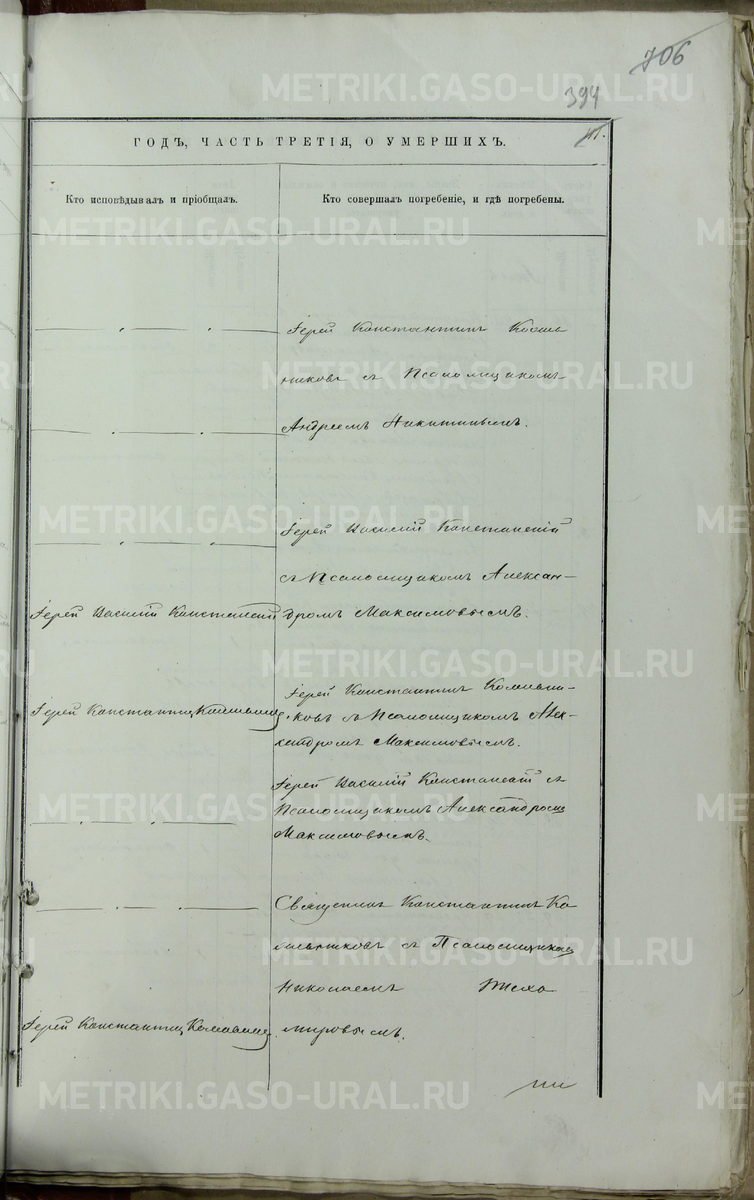 706
394
ГОДЪ, ЧАСТЬ ТРЕТІЯ, О УМЕРШИХЪ.
Кто исповѣдывалъ и пріобщалъ.
Кто совершалъ погребеніе, и гдѣ погребены.
Іерей Константинъ
никовъ съ Псаломщикомъ
Андреемъ Никитинымъ.
Іерей Василій
съ Псаломщикомъ Алексан-
дромъ Максимовымъ.
Іерей Василій
Іерей Константинъ
Іерей Константинъ
ковъ съ Псаломщикомъ Алек-
сандромъ Максимовымъ.
Іерей Василій съ
Псаломщикомъ Александромъ
Максимовымъ.
Священникъ Константинъ
съ Псаломщикомъ
Николаемъ Тихо
мировымъ.
Іерей Константинъ
METRIKI.GASO-URAL.RU